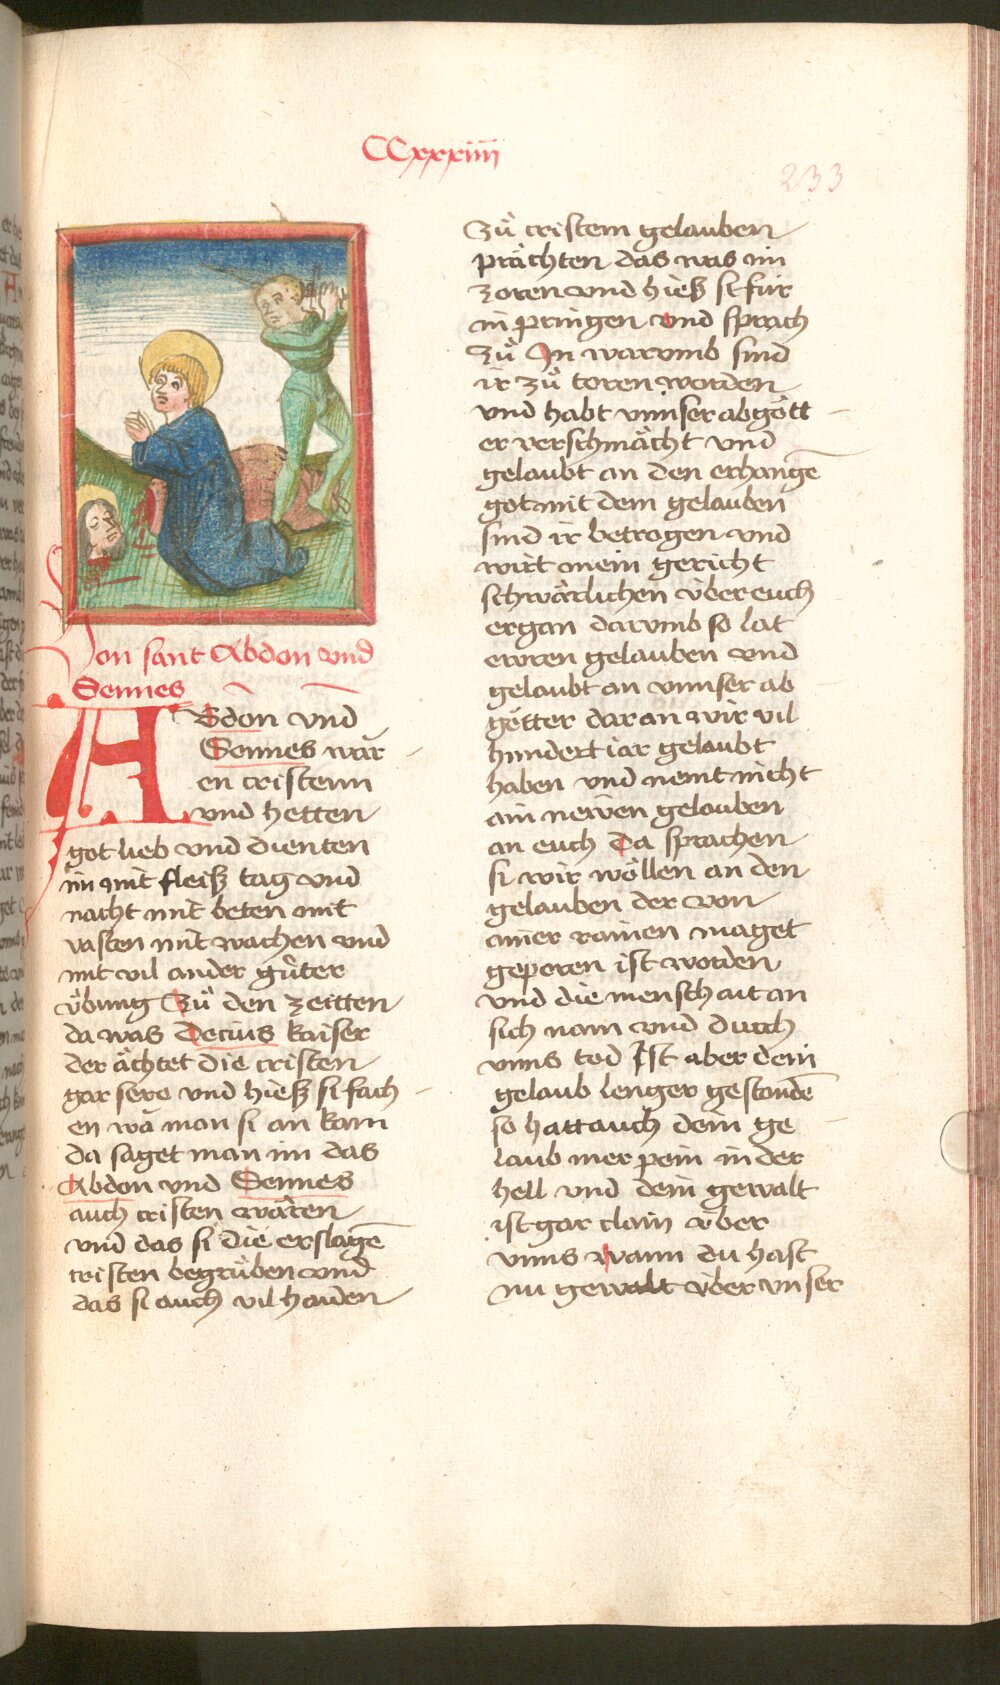 CCxxxiiii
233
Von sant Abdon vnd
Sennes
ABdon vnd
Sennes wär
en cristenn
vnd hetten
got lieb vnd dienten
im mit fleiß tag vnd
nacht mit beten mit
vasten mit wachen vnd
mit vil ander gůter
v̈bung Zů den zeitten
da was Decius kaiser
der ächtet die cristen
gar sere vnd hieß si fach
en wa man si an kam
da saget man im das
Abdon vnd Sennes
auch cristen wären
vnd das si die erslagē
cristen begrůben vnd
das si auch vil haiden
zů cristem gelauben
prächten das was im
zoren vnd hieß si für
in pringen vnd sprach
zů In warumb sind
ir zů toren worden
vnd habt vnnser abgött
er verschmächt vnd
gelaubt an den erhangē
got mit dem gelauben
sind ir betrogen vnd
wirt mein gericht
schwärlichen v̈ber euch
ergan darumb so lat
ewren gelauben vnd
gelaubt an vnnser ab
götter dar an wir vil
hundert iar gelaubt
haben vnd nemt nicht
ain newen gelauben
an euch Da sprachen
si wir wöllen an den
gelauben der von
ainer rainen maget
geporen ist worden
vnd die menschait an
sich nam vnd durch
vnns tod Ist aber dein
gelaub lenger gestandē
so hatt auch dein ge
laub mer pein in der
hell vnd dein gewalt
ist gar clain v̈ber
vnns wann du hast
nu gewalt v̈ber vnser